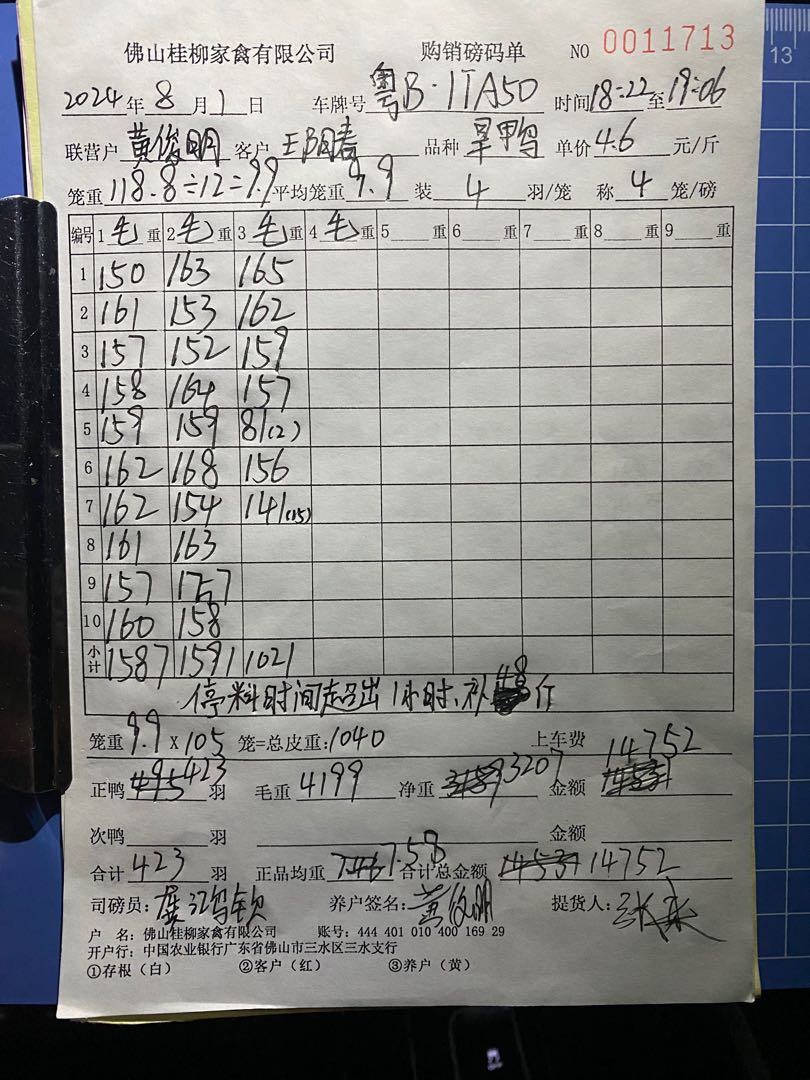 佛山桂柳家禽有限公司 购销磅码单 NO 0011713
2024年8月1日 车牌号 粤B·1TA50 时间18:22至19:06
联营户 黄俊明 客户 品种 旱鸭 单价4.6元/斤
笼重118.8÷12=9.9 平均笼重9.9 装4羽/笼 称4笼/磅
编号 1毛重 2毛重 3毛重 4毛重 5重 6重 7重 8重 9重
1 150 163 165
2 161 153 162
3 157 152 159
4 158 164 157
5 159 159 81(2)
6 162 168 156
7 162 154 141(15)
8 161 163
9 157 157
10 160 158
小计 1587 1591 1021
停料时间超出1小时.补48斤
笼重9.9×105笼=总皮重:1040 上车费
14752
正鸭423羽 毛重4199 净重3207 金额
次鸭 羽 金额
合计423羽 正品均重7.58 合计总金额14752
司磅员: 养户签名:黄俊明 提货人:
户 名:佛山桂柳家禽有限公司 账号:444 401 010 400 169 29
开户行:中国农业银行广东省佛山市三水区三水支行
①存根(白) ②客户(红) ③养户(黄)
13